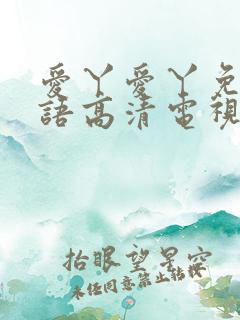 愛丫愛丫免
語高清電視
抬眼望星空
未任同意禁止转投